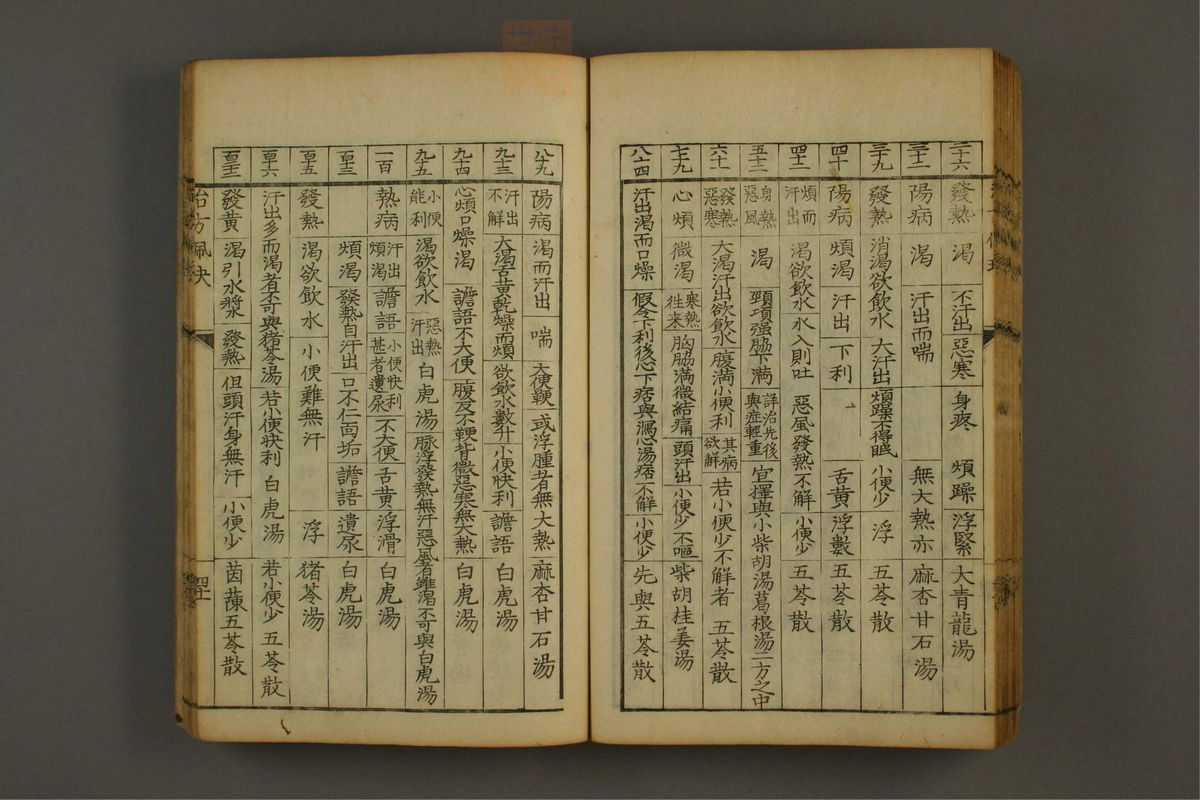 三十六 發熱 渴 不汗出 惡寒 身疼 煩躁 浮緊 大青龍湯
三十二 陽病 渴 汗出而喘 無大熱 亦 麻杏甘石湯
三十九 發熱 消渴欲飲水 大汗出 煩躁不得眠 小便少 浮 五苓散
四十 陽病 煩渴 汗出 下利 舌黄 浮數 五苓散
四十二 煩而汗出 渴欲飲水 水入則吐 惡風發熱 不解 小便少 五苓散
五十三 身熱惡風 渴 頸項强 脇下滿 詳治先後與症輕重 宜擇與小柴胡湯葛根湯二方之中
六十一 發熱惡寒 大渴汗出欲飲水 腹滿 小便利 其病欲解 若小便少不解者 五苓散
七十九 心煩 微渴 寒熱徃来 胸脇滿微結痛 頭汗出 小便少 不嘔 柴胡桂姜湯
八十四 汗出渴而口燥 假令下利後心下痞與瀉心湯痞不解 小便少 先與五苓散
八十九 陽病 渴而汗出 喘 大便鞕 或浮腫者無大熱 麻杏甘石湯
九十三 汗出不解 大渴舌黄乾燥而煩 欲飲水數升 小便快利 譫語 白虎湯
九十四 心煩口燥渴 譫語不大便 腹反不鞕 背微惡寒無大熱 白虎湯
九十五 小便能利 渴欲飲水 惡熱汗出 白虎湯 脉浮發熱無汗惡風者雖渴不可與白虎湯
一百 熱病 汗出煩渴 譫語 小便快利甚者遺尿 不大便 舌黄 浮滑 白虎湯
煩渴 發熱自汗出 口不仁面垢 譫語 遺尿 白虎湯
發熱 渴欲飲水 小便難無汗 浮 猪苓湯
汗出多而渴者不可與猪苓湯 若小便快利 白虎湯 若小便少 五苓散
發黄 渴引水漿 發熱 但頭汗身無汗 小便少 茵蔯五苓散
治方佩決